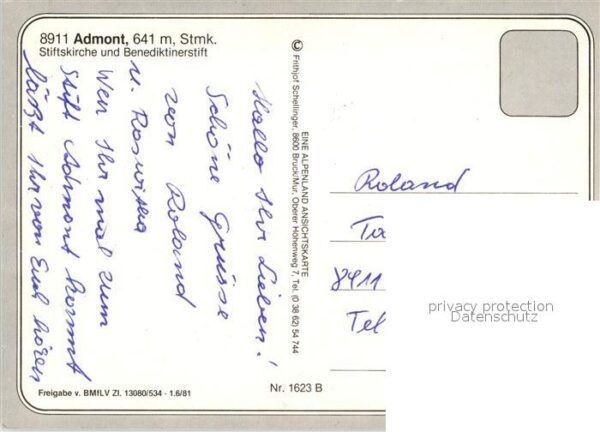 8911 Admont, 641 m, Stmk.
Stiftskirche und Benediktinerstift
Hallo Ihr Lieben!
Schöne Grüsse
von Roland
u. Roswitha
Wen Ihr mal zum
Stift Admont kommt
läßt Ihr von Euch hören
© Frithjof Schellinger, 8600 Bruck/Mur, Oberer Höhenweg 7, Tel. (0 38 62) 54 744
EINE ALPENLAND ANSICHTSKARTE
Roland
Ta
8911
Tel
privacy protection
Datenschutz
Freigabe v. BMfLV Zl. 13080/534 - 1.6/81
Nr. 1623 B